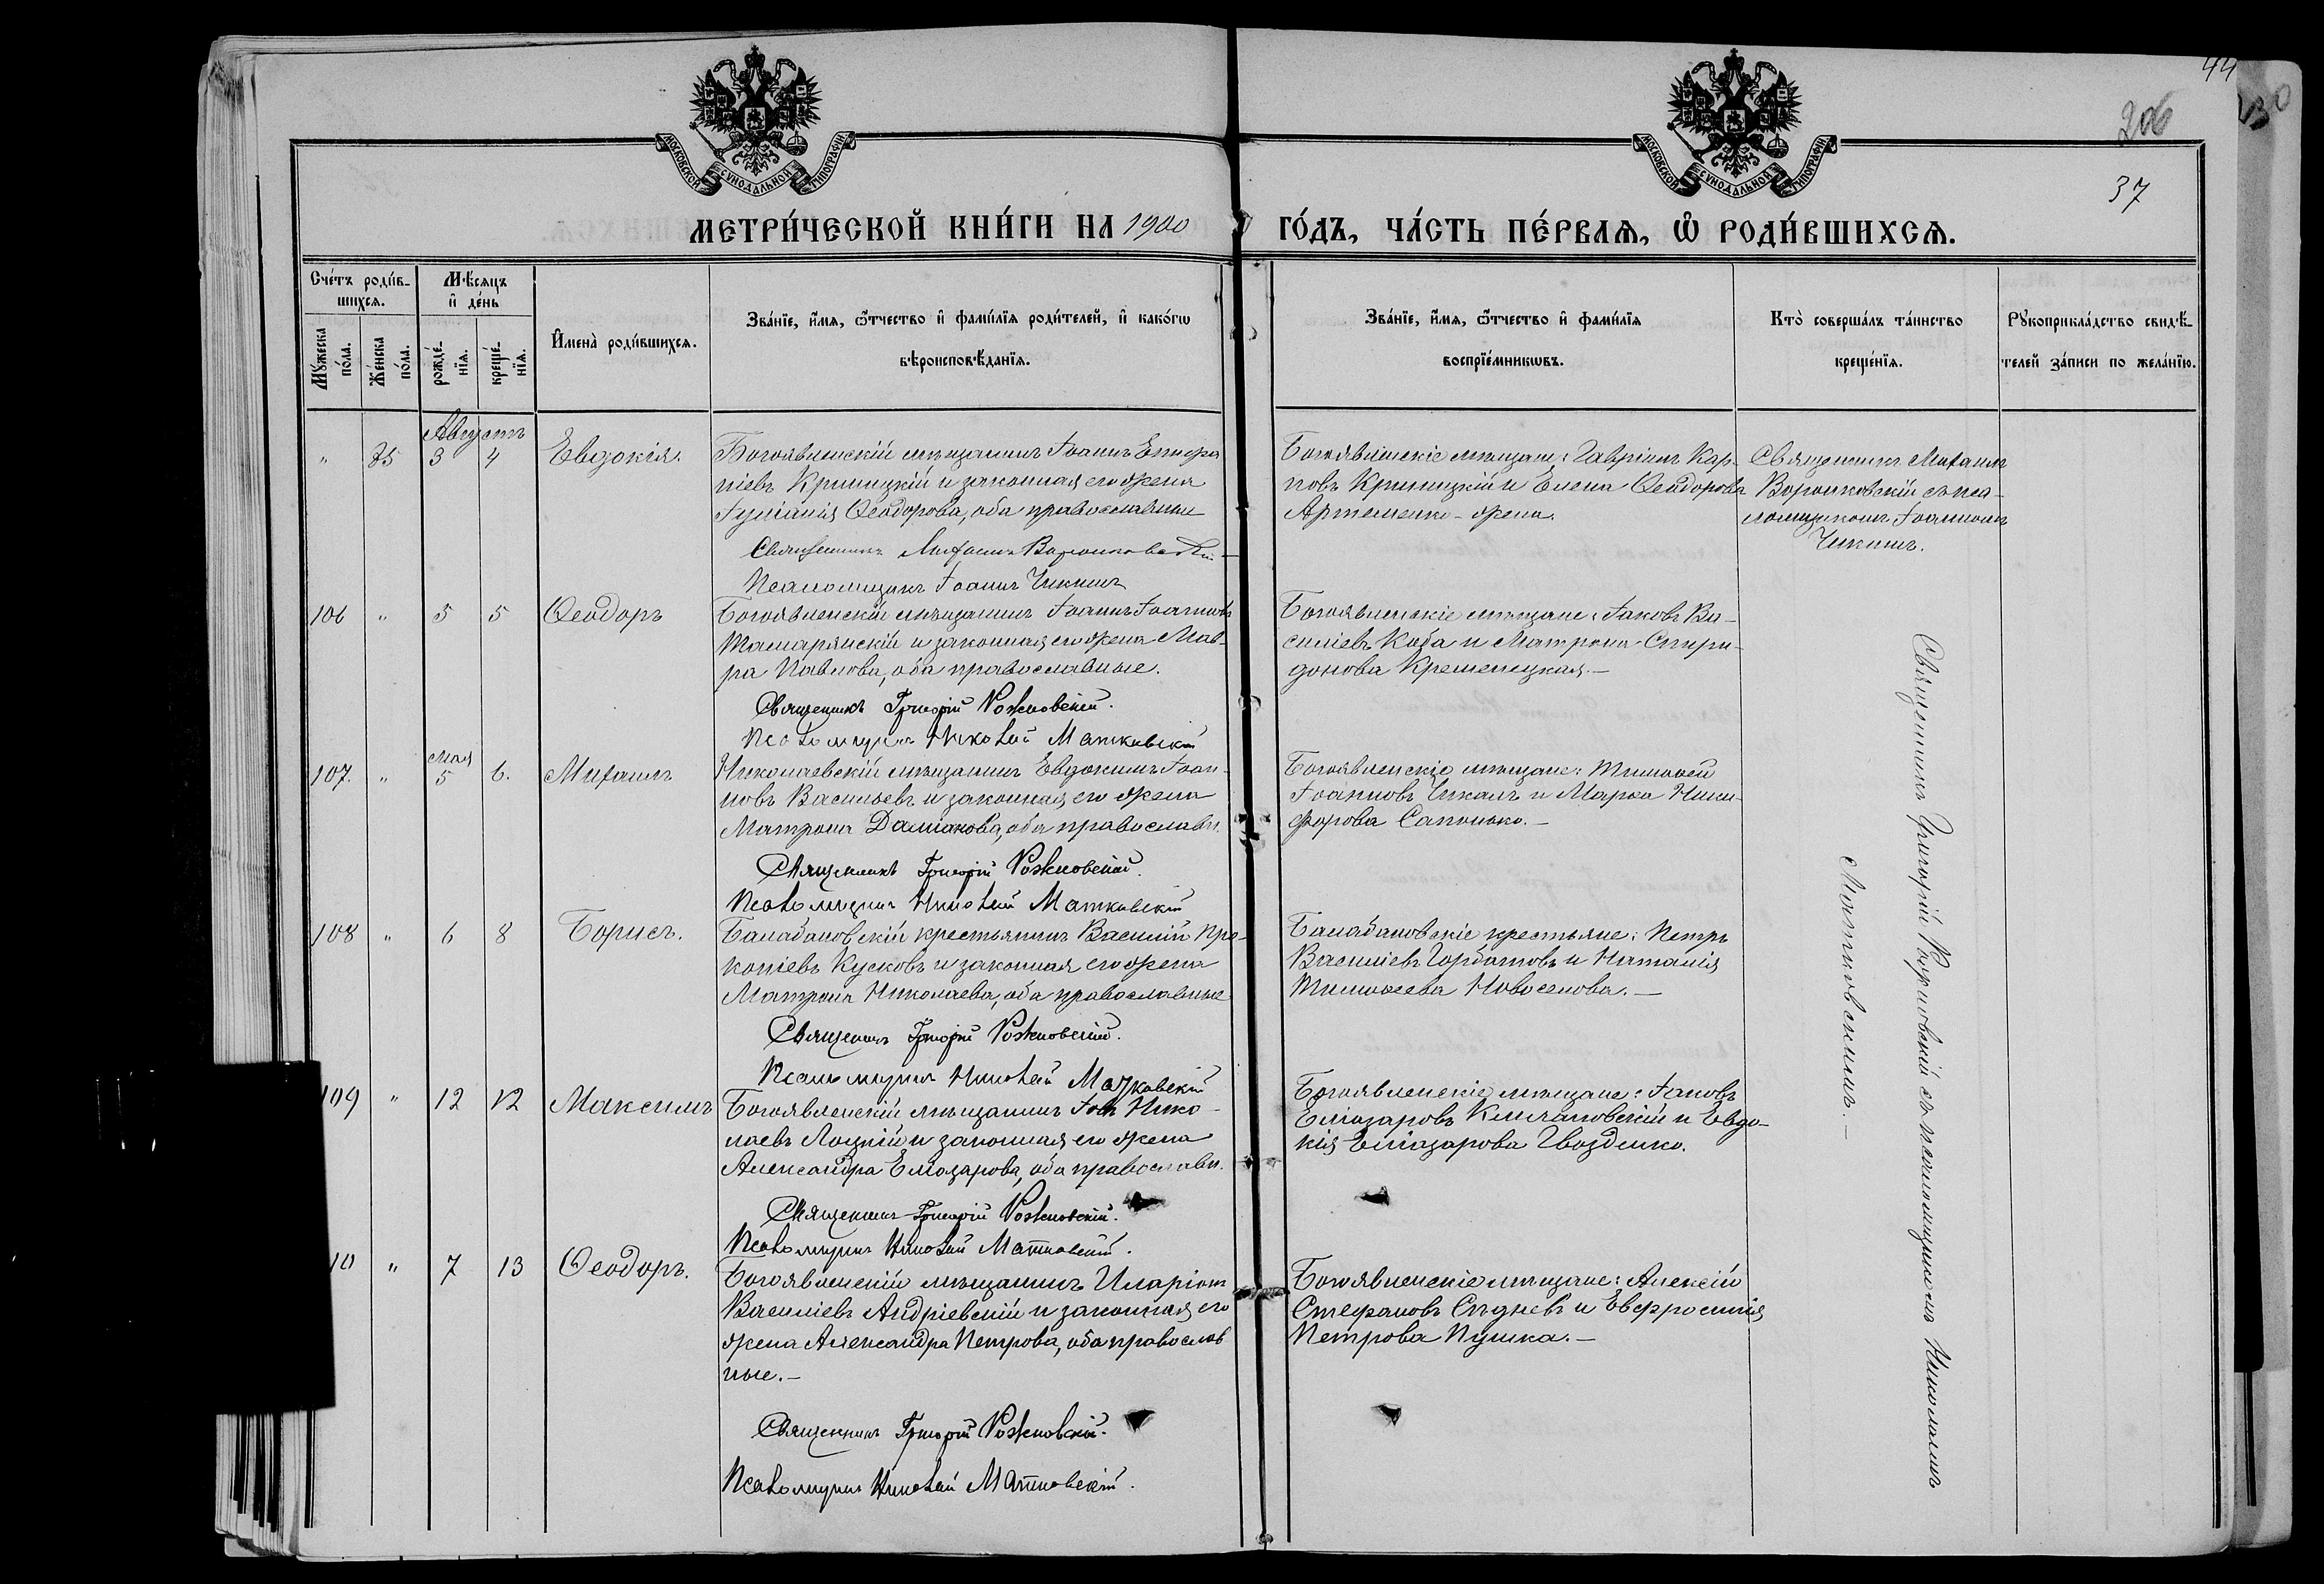 44
206
230
37
МОСКОВСКОЙ СѴНОДАЛЬНОЙ ТИПОГРАФІИ
МОСКОВСКОЙ СѴНОДАЛЬНОЙ ТИПОГРАФІИ
МЕТРИ́ЧЕСКОЙ КНИ́ГИ НА 1900 ГО́ДЪ, ЧА́СТЬ ПЕ́РВАѦ, Ѡ РОДИ́ВШИХСѦ.
Сче́тъ роди́в-
шихсѧ.
Мꙋ́жеска по́ла.
Же́нска по́ла.
Мѣ́сѧцъ и҆ де́нь
рожде́-нїѧ.
креще́-нїѧ.
И҆мена̀ роди́вшихсѧ.
Зва́нїе, и҆́мѧ, ѻ҆́тчество и҆ фами́лїѧ роди́телей, и҆ како́гѡ
вѣроисповѣ́данїѧ.
Зва́нїе, и҆́мѧ, ѻ҆́тчество и҆ фами́лїѧ
воспрїе́мникѡвъ.
Кто̀ соверша́лъ та́инство
креще́нїѧ.
Рꙋкоприкла́дство свидѣ́-
телей за́писи по жела́нїю.
Августъ
" 35 3 4 Евдокія.
Богоявленскій мѣщанинъ Іоаннъ Епифа
ніевъ Криницкій и законная его жена
Іуліанія Ѳеодорова, оба православные
Священникъ Михаилъ Воронковскій
Псаломщикъ Іоаннъ Чикинъ
Богоявленскіе мѣщане: Гавріилъ Кар-
повъ Криницкій и Елена Ѳеодорова
Артеменко - жена.
Священникъ Михаилъ
Воронковскій съ пса-
ломщикомъ Іоанномъ
Чикинъ.
106 " 5 5 Ѳеодоръ
Богоявленскій мѣщанинъ Іоаннъ Іоанновъ
Тамарянскій и законная его жена Мав-
ра Павлова, оба православные.
Священникъ Григорій
Псаломщикъ Николай Матковскій
Богоявленскіе мѣщане: Іаковъ Ва-
силіевъ Коба и Матрона Спири-
донова Кременецкая.—
мая
107. " 5 6. Михаилъ
Николаевскій мѣщанинъ Евдокимъ Іоан-
новъ Васильевъ и законная его жена
Матрона Даміанова, оба православн.
Священникъ Григорій
Псаломщикъ Николай Матковскій
Богоявленскіе мѣщане: Тимоѳей
Іоанновъ Чикалъ и Марѳа Ники-
форова Сапонько.—
108 " 6 8 Борисъ.
Балабановскій крестьянинъ Василій Про-
копіевъ Кусковъ и законная его жена
Матрона Николаева, оба православные
Священникъ Григорій
Псаломщикъ Николай Матковскій
Балабановскіе крестьяне: Петръ
Василіевъ Горбатовъ и Наталія
Тимоѳеева Новоселова.—
109 " 12 12 Максимъ
Богоявленскій мѣщанинъ Іовъ Нико-
лаевъ Лоцкій и законная его жена
Александра Еліазарова, оба православн.
Священникъ Григорій
Псаломщикъ Николай Матковскій.
Богоявленскіе мѣщане: Іаковъ
Еліазаровъ и Евдо-
кія Еліазарова Гвозденко.
10 " 7 13 Ѳеодоръ.
Богоявленскій мѣщанинъ Иларіонъ
Василіевъ Андріевскій и законная его
жена Александра Петрова, оба православ
ные.—
Священникъ Григорій
Псаломщикъ Николай Матковскій.
Богоявленскіе мѣщане: Алексій
Стефановъ и Евфросинія
Петрова Пушка.—
Священникъ Григорій съ псаломщикомъ Николаемъ
Матковскимъ.—